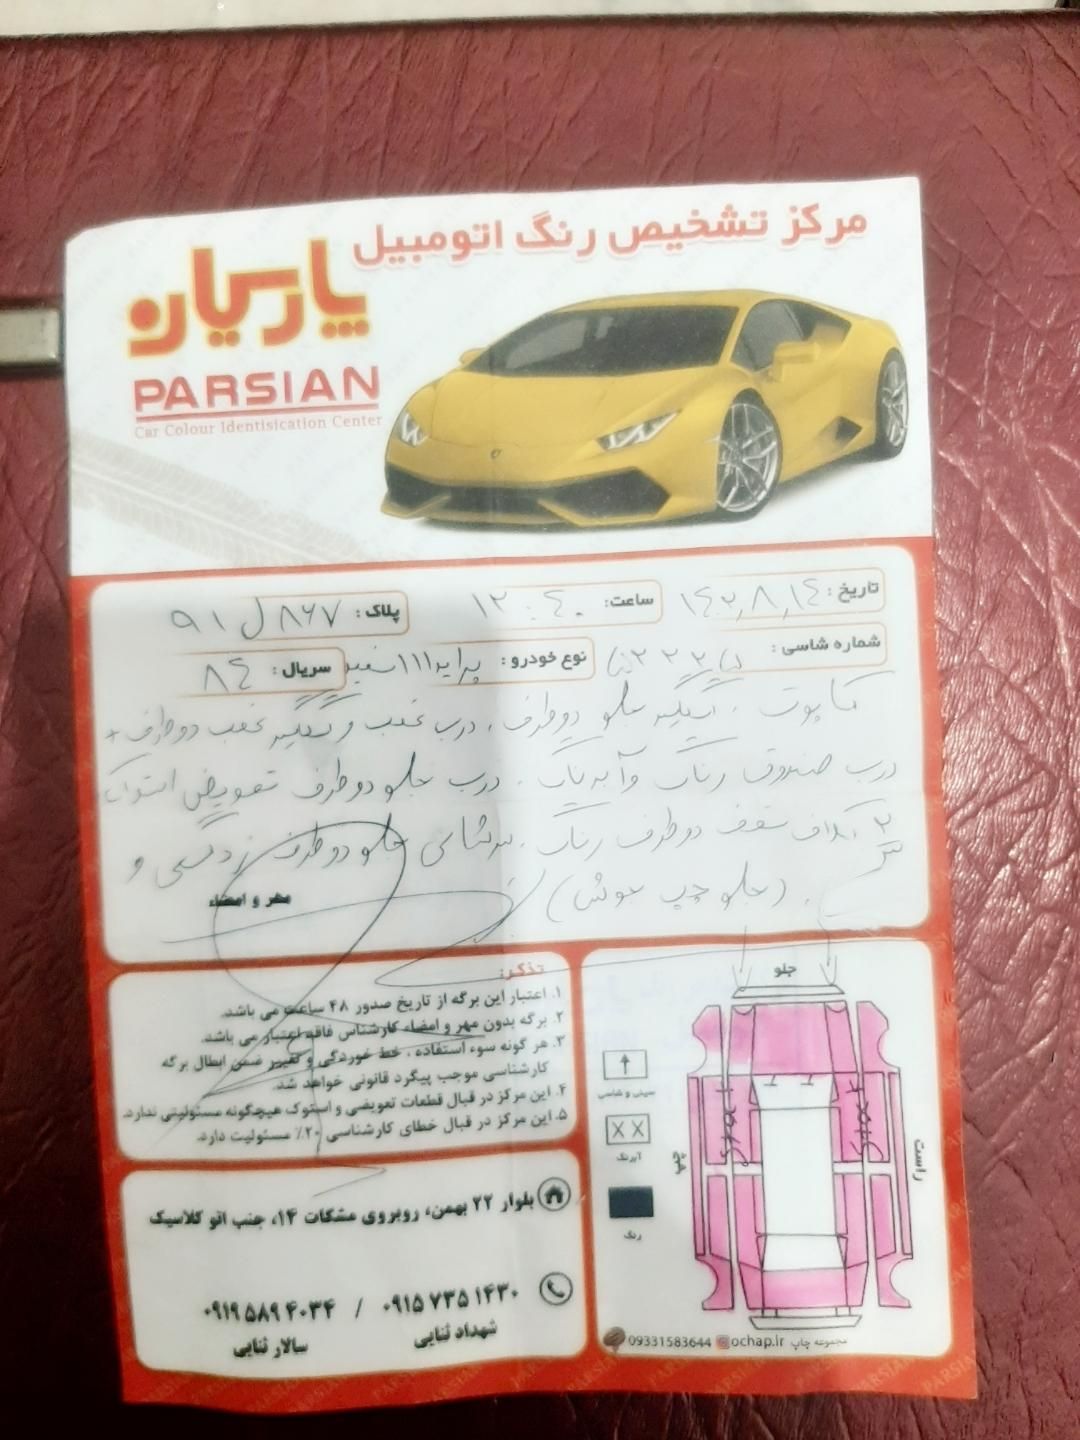 مرکز تشخیص رنگ اتومبیل
پارسیان
PARSIAN
Car Colour Identisication Center
تاریخ : ۱۴۰۲,۸,۱۴
ساعت: ۱۲:۴۰
پلاک : ۸۶۷ ل ۹۱
شماره شاسی :
نوع خودرو : پراید ۱۱۱ سفید
سریال : ۸۴
کاپوت ، گلگیر جلو دو طرف ، درب عقب و گلگیر عقب دو طرف +
درب صندوق رنگ و آبرنگ . درب جلو دو طرف تعویض استوک
سقف دو طرف رنگ . سرشاسی جلو دو طرف و
. (جلو چپ جوش)
مهر و امضاء
تذکر:
۱. اعتبار این برگه از تاریخ صدور ۴۸ ساعت می باشد.
۲. برگه بدون مهر و امضاء کارشناس فاقد اعتبار می باشد.
۳. هر گونه سوء استفاده ، خط خوردگی و تغییر ضمن ابطال برگه
کارشناسی موجب پیگرد قانونی خواهد شد.
۴. این مرکز در قبال قطعات تعویضی و استوک هیچگونه مسئولیتی ندارد.
۵. این مرکز در قبال خطای کارشناسی ۲۰٪ مسئولیت دارد.
بلوار ۲۲ بهمن، روبروی مشکات ۱۴، جنب اتو کلاسیک
۰۹۱۵ ۷۳۵ ۱۴۳۰ / ۰۹۱۹ ۵۸۹ ۴۰۳۴
شهداد ثنایی
سالار ثنایی
جلو
راست
چپ
سینی و شاسی
X X
آبرنگ
رنگ
مجموعه چاپ ochap.ir 09331583644